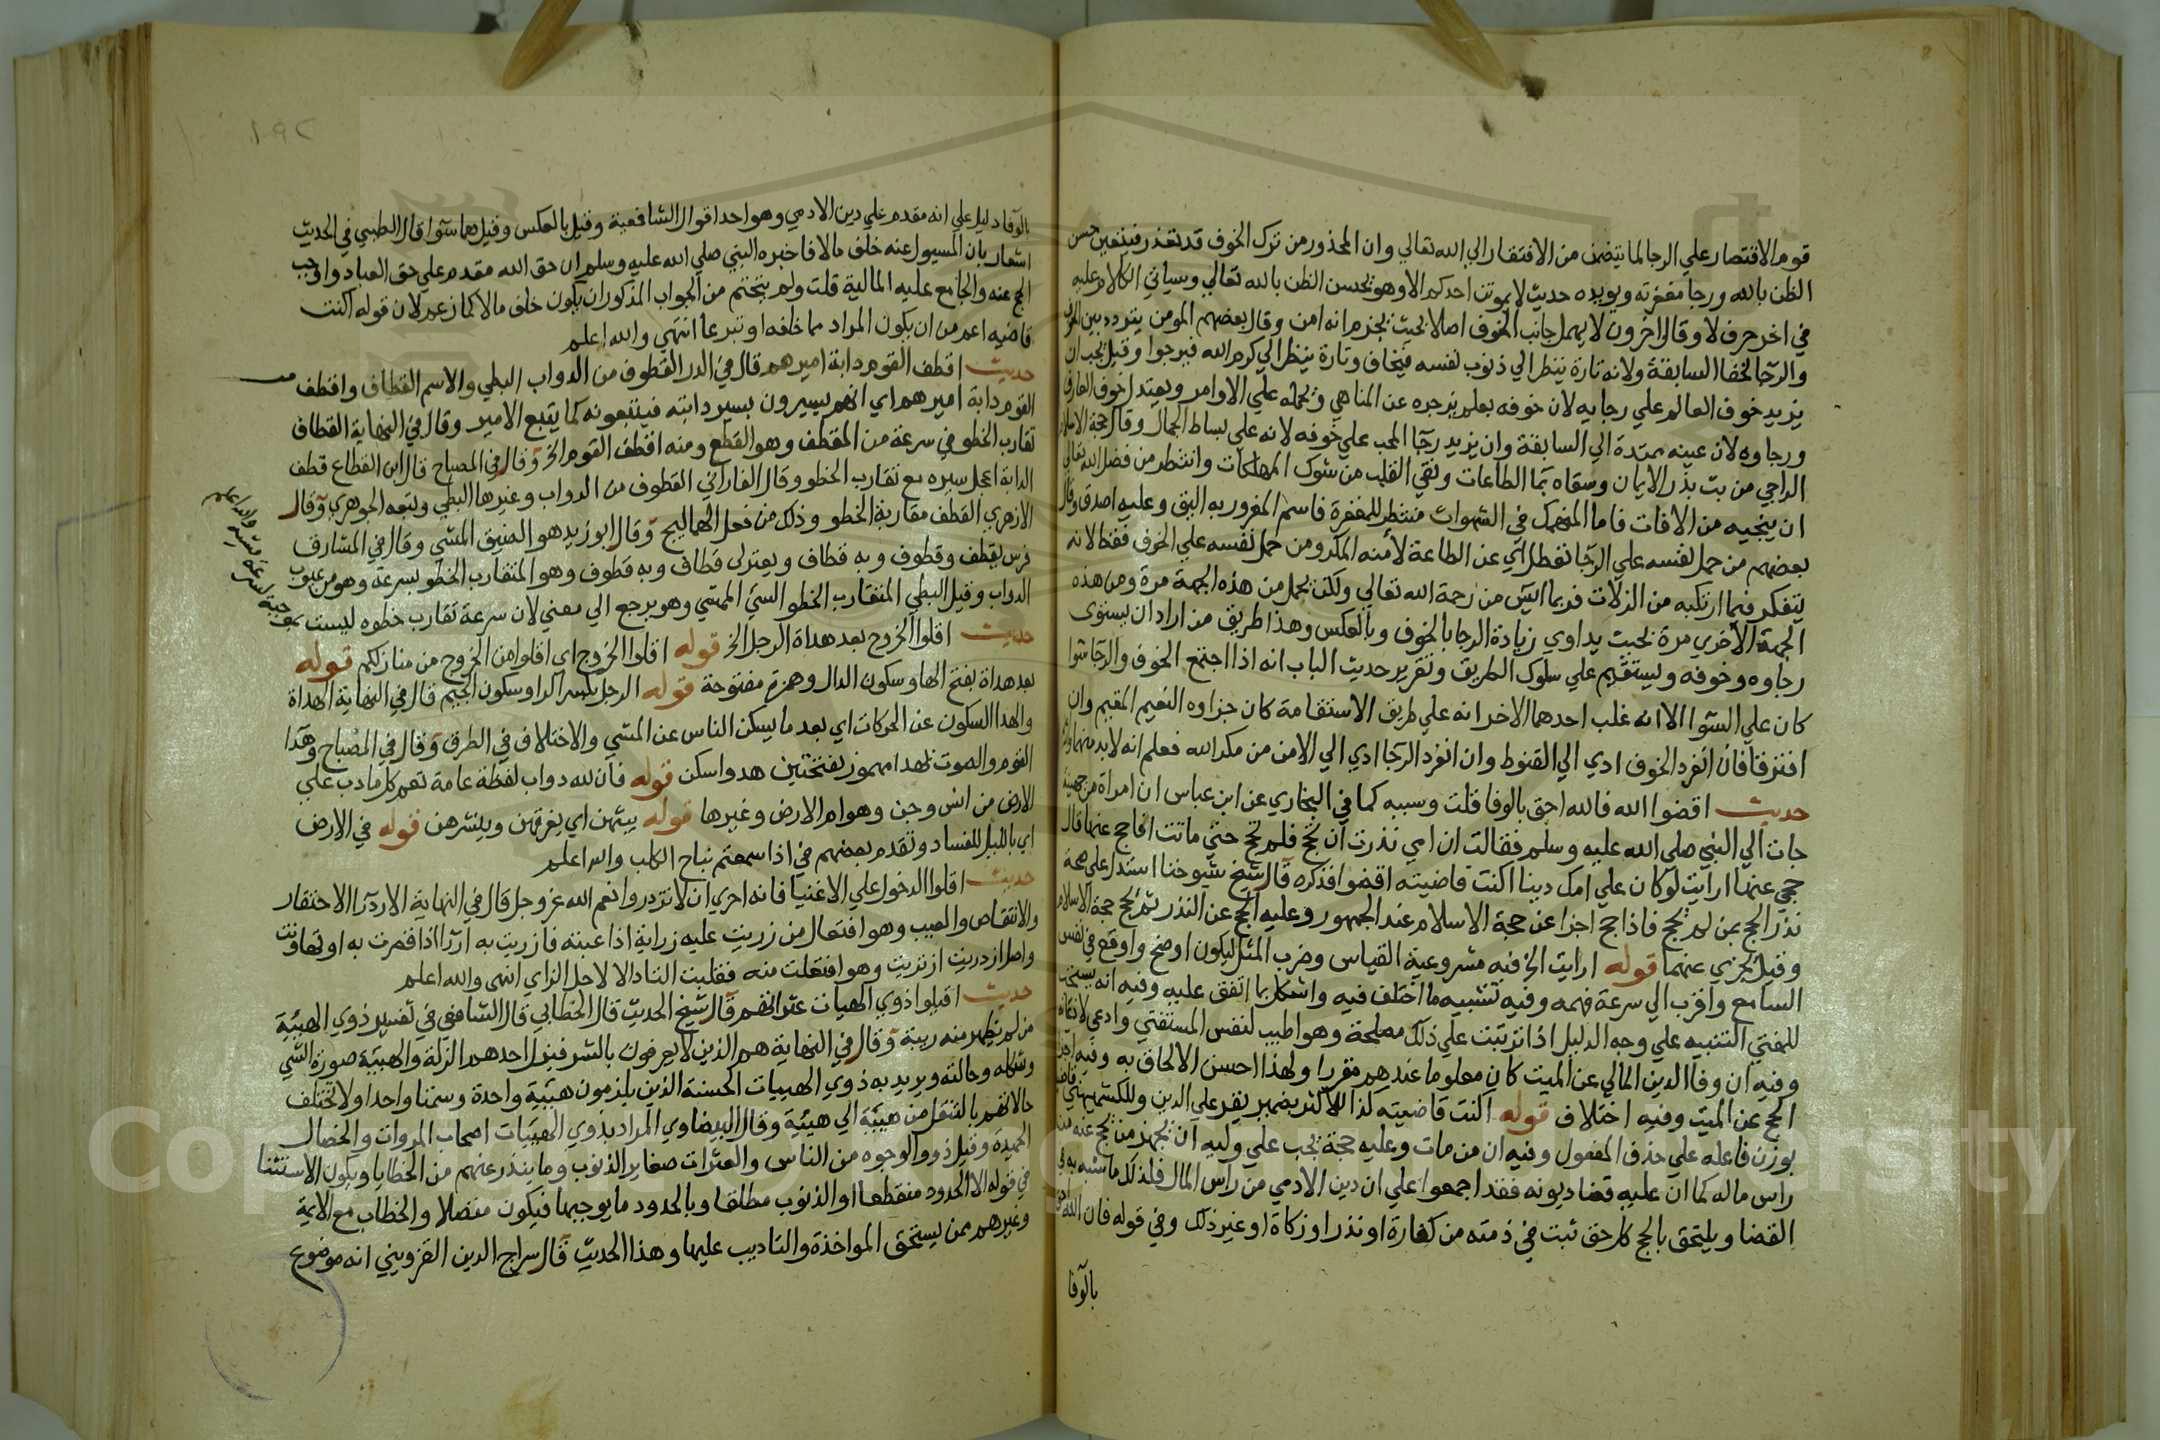 قوم الاقتصار علي الرجا لما يتضمن من الافتقار الي الله تعالي وان المحذور من ترك الخوف قد تعذر فيتعين حسن
الظن بالله ورجا مغفرته ويويده حديث لا يموتن احدكم الا وهو يحسن الظن بالله تعالي وسياتي الكلام عليه
في اخر حرف لا وقال اخرون لا يهمل جانب الخوف اصلا بحيث يجزم انه امن وقال بعضهم المومن يتردد بين الخوف
والرجا لخفا السابقة ولانه تارة ينظر الي ذنوب لنفسه فيخاف وتارة ينظر الي كرم الله فيرجوا وقيل يجب ان
يزيد خوف العالم علي رجايه لان خوفه بعلم يزجره عن المناهي ويحمله علي الاوامر ويعتدل خوف العارف
ورجاوه لان عينه ممتدة الي السابقة وان يزيد رجا المحب علي خوفه لانه علي بساط الجمال وقال حجة الاسلام
الراجي من بث بذر الايمان وسقاه بما الطاعات ونقي القلب من شوك المهلكات وانتظر من فضل الله تعالي
ان ينجيه من الافات فاما المنهمك في الشهوات منتظر للمغفرة فاسم المغرور به اليق وعليه اصدق وقال
بعضهم من حمل لنفسه علي الرجا تعطل اي عن الطاعة لأمنه المكر ومن حمل لنفسه علي الخوف قنط لانه
يتفكر فيما ارتكبه من الزلات فربما ايس من رحمة الله تعالي ولكن يحمل من هذه الجهة مرة ومن هذه
الجهة الاخري مرة بحيث يداوي زيادة الرجا بالخوف وبالعكس وهذا طريق من اراد ان يستوى
رجاوه وخوفه ويستقيم علي سلوك الطريق وتقرير حديث الباب انه اذا اجتمع الخوف والرجا سوا
كان علي السوا الا انه غلب احدهما الاخر انه علي طريق الاستقامة كان جزاوه النعيم المقيم وان
افترقا فان انفرد الخوف ادي الي القنوط وان انفرد الرجا ادي الي الامن من مكر الله فعلم انه لابد منهما
حديث اقضوا الله فالله احق بالوفا قلت وسببه كما في البخاري عن ابن عباس ان امراة من جهينة
جات الي النبي صلي الله عليه وسلم فقالت ان امي نذرت ان تحج فلم تحج حتي ماتت افاحج عنها قال
حجي عنها ارايت لو كان علي امك دينا اكنت قاضيته اقضوا فذكره قال شيخ شيوخنا استدل علي صحة
نذر الحج بمن لم يحج فاذا حج اجزا عن حجة الاسلام عند الجمهور وعليه الحج عن النذر ثم يحج حجة الاسلام
وقيل يجزي عنهما قوله ارايت الخ فيه مشروعية القياس وضرب المثل ليكون اوضح واوقع في نفس
السامع واقرب الي سرعة فهمه وفيه تشبيه ما اختلف فيه واشكل بما اتفق عليه وفيه انه يستحب
للمفتي التنبيه علي وجه الدليل اذا ترتبت علي ذلك مصلحة وهو اطيب لنفس المستفتي وادعي لاذعانه
وفيه ان وفا الدين المالي عن الميت كان معلوما عندهم مقررا ولهذا احسن الالحاق به وفيه اجزا
الحج عن الميت وفيه اختلاف قوله اكنت قاضيته كذا للاكثر بضمير يعود علي الدين وللكشميهني قاضية
بوزن فاعله علي حذف المفعول وفيه ان من مات وعليه حجة يجب علي وليه ان يجهز من يحج عنه من
راس ماله كما ان عليه قضا ديونه فقد اجمعوا علي ان دين الادمي من رأس المال فلذلك ما شبه به في
القضا ويلتحق بالحج كل حق ثبت في ذمته من كفارة او نذر او زكاة او غير ذلك وفي قوله فان الله احق
بالوفا
بالوفا دليل علي انه مقدم علي دين الادمي وهو احد اقوال الشافعية وقيل بالعكس وقيل هما سوآ قال الطيبي في الحديث
اشعار بان المسيول عنه خلف مالا فاخبره النبي صلي الله عليه وسلم ان حق الله مقدم علي حق العباد واوجب
الحج عنه والجامع عليه المالية قلت ولم يتحتم من الجواب المذكور ان يكون خلف مالا كما زعم لان قوله اكنت
قاضيه اعم من ان يكون المراد مما خلفه او تبرعا انتهي والله اعلم
حديث اقطف القوم دابة اميرهم قال في الدر القطوف من الدواب البطي والاسم القطاف واقطف
القوم دابة اميرهم اي انهم يسيرون بسير دابته فيتبعونه كما يتبع الامير وقال في النهاية القطاف
تقارب الخطو في سرعة من القطف وهو القطع ومنه اقطف القوم الخ وقال في المصباح قال ابن القطاع قطف
الدابة اعجل سيره مع تقارب الخطو وقال الفارابي القطوف من الدواب وغيرها البطي وتبعه الجوهري وقال
الازهري القطف مقاربة الخطو وذلك من فعل الهماليج وقال ابو زيد هو الضيق المشي وقال في المشارق
فرس يقطف وقطوف وبه قطاف ويعتزلي قطاف وبه قطوف وهو المتقارب الخطو بسرعة وهو من عيوب
الدواب وقيل البطي المتقارب الخطو السيئ المشي وهو يرجع الي معني لان سرعة تقارب خطوه ليست بموجبة لسرعة مشيه والله اعلم
حديث اقلوا الخروج بعد هداة الرجل الخ قوله اقلوا الخروج اي اقلوا من الخروج من منازلكم قوله
بعد هداة بفتح الها وسكون الدال وهمزة مفتوحة قوله الرجل بكسر الرا وسكون الجيم قال في النهاية الهداة
والهدا السكون عن الحركات اي بعد ما يسكن الناس عن المشي والاختلاف في الطرق وقال في المصباح وهدا
القوم والصوت يهدا مهموز بفتحتين هدوا سكن قوله فان لله دواب لفظة عامة تعم كل ما دب علي
الارض من انس وجن وهوام الارض وغيرها قوله يبثهن اي يفرقهن وينشرهن قوله في الارض
اي بالليل للفساد وتقدم بعضهم في اذا سمعتم نباح الكلب والله اعلم
حديث اقلوا الدخول علي الاغنيا فانه احري ان لا تزدروا نعم الله عز وجل قال في النهاية الازدرا الاحتقار
والانتقاص والعيب وهو افتعال من زريت عليه زراية اذا عبته وازريت به ازرآ اذا قصرت به او تهاونت
واصل ازدريت ازتريت وهو افتعلت منه فقلبت التا دالا لاجل الزاي انتهى والله اعلم
حديث اقيلوا ذوي الهيات عثراتهم قال شيخ الحديث قال الخطابي قال الشافعي في تفسير ذوي الهيئة
من لم تظهر منه ريبة وقال في النهاية هم الذين لا يعرفون بالشر فيزل احدهم الزلة والهيئة صورة الشي
وشكله وحالته ويريد به ذوي الهييات الحسنة الذين يلزمون هييية واحدة وسمتا واحدا ولا تختلف
حالاتهم بالتنقل من هيئة الي هيئة وقال البيضاوي المراد بذوي الهييات اصحاب المروات والخصال
الحميدة وقيل ذووا الوجوه من الناس والعثرات صغاير الذنوب وما يندر عنهم من الخطايا ويكون الاستثنا
في قوله الا الحدود منقطعا او الذنوب مطلقا وبالحدود ما يوجبها فيكون متصلا والخطاب مع الايمة
وغيرهم ممن يستحق المواخذة والتاديب عليها وهذا الحديث قال سراج الدين القزويني انه موضوع